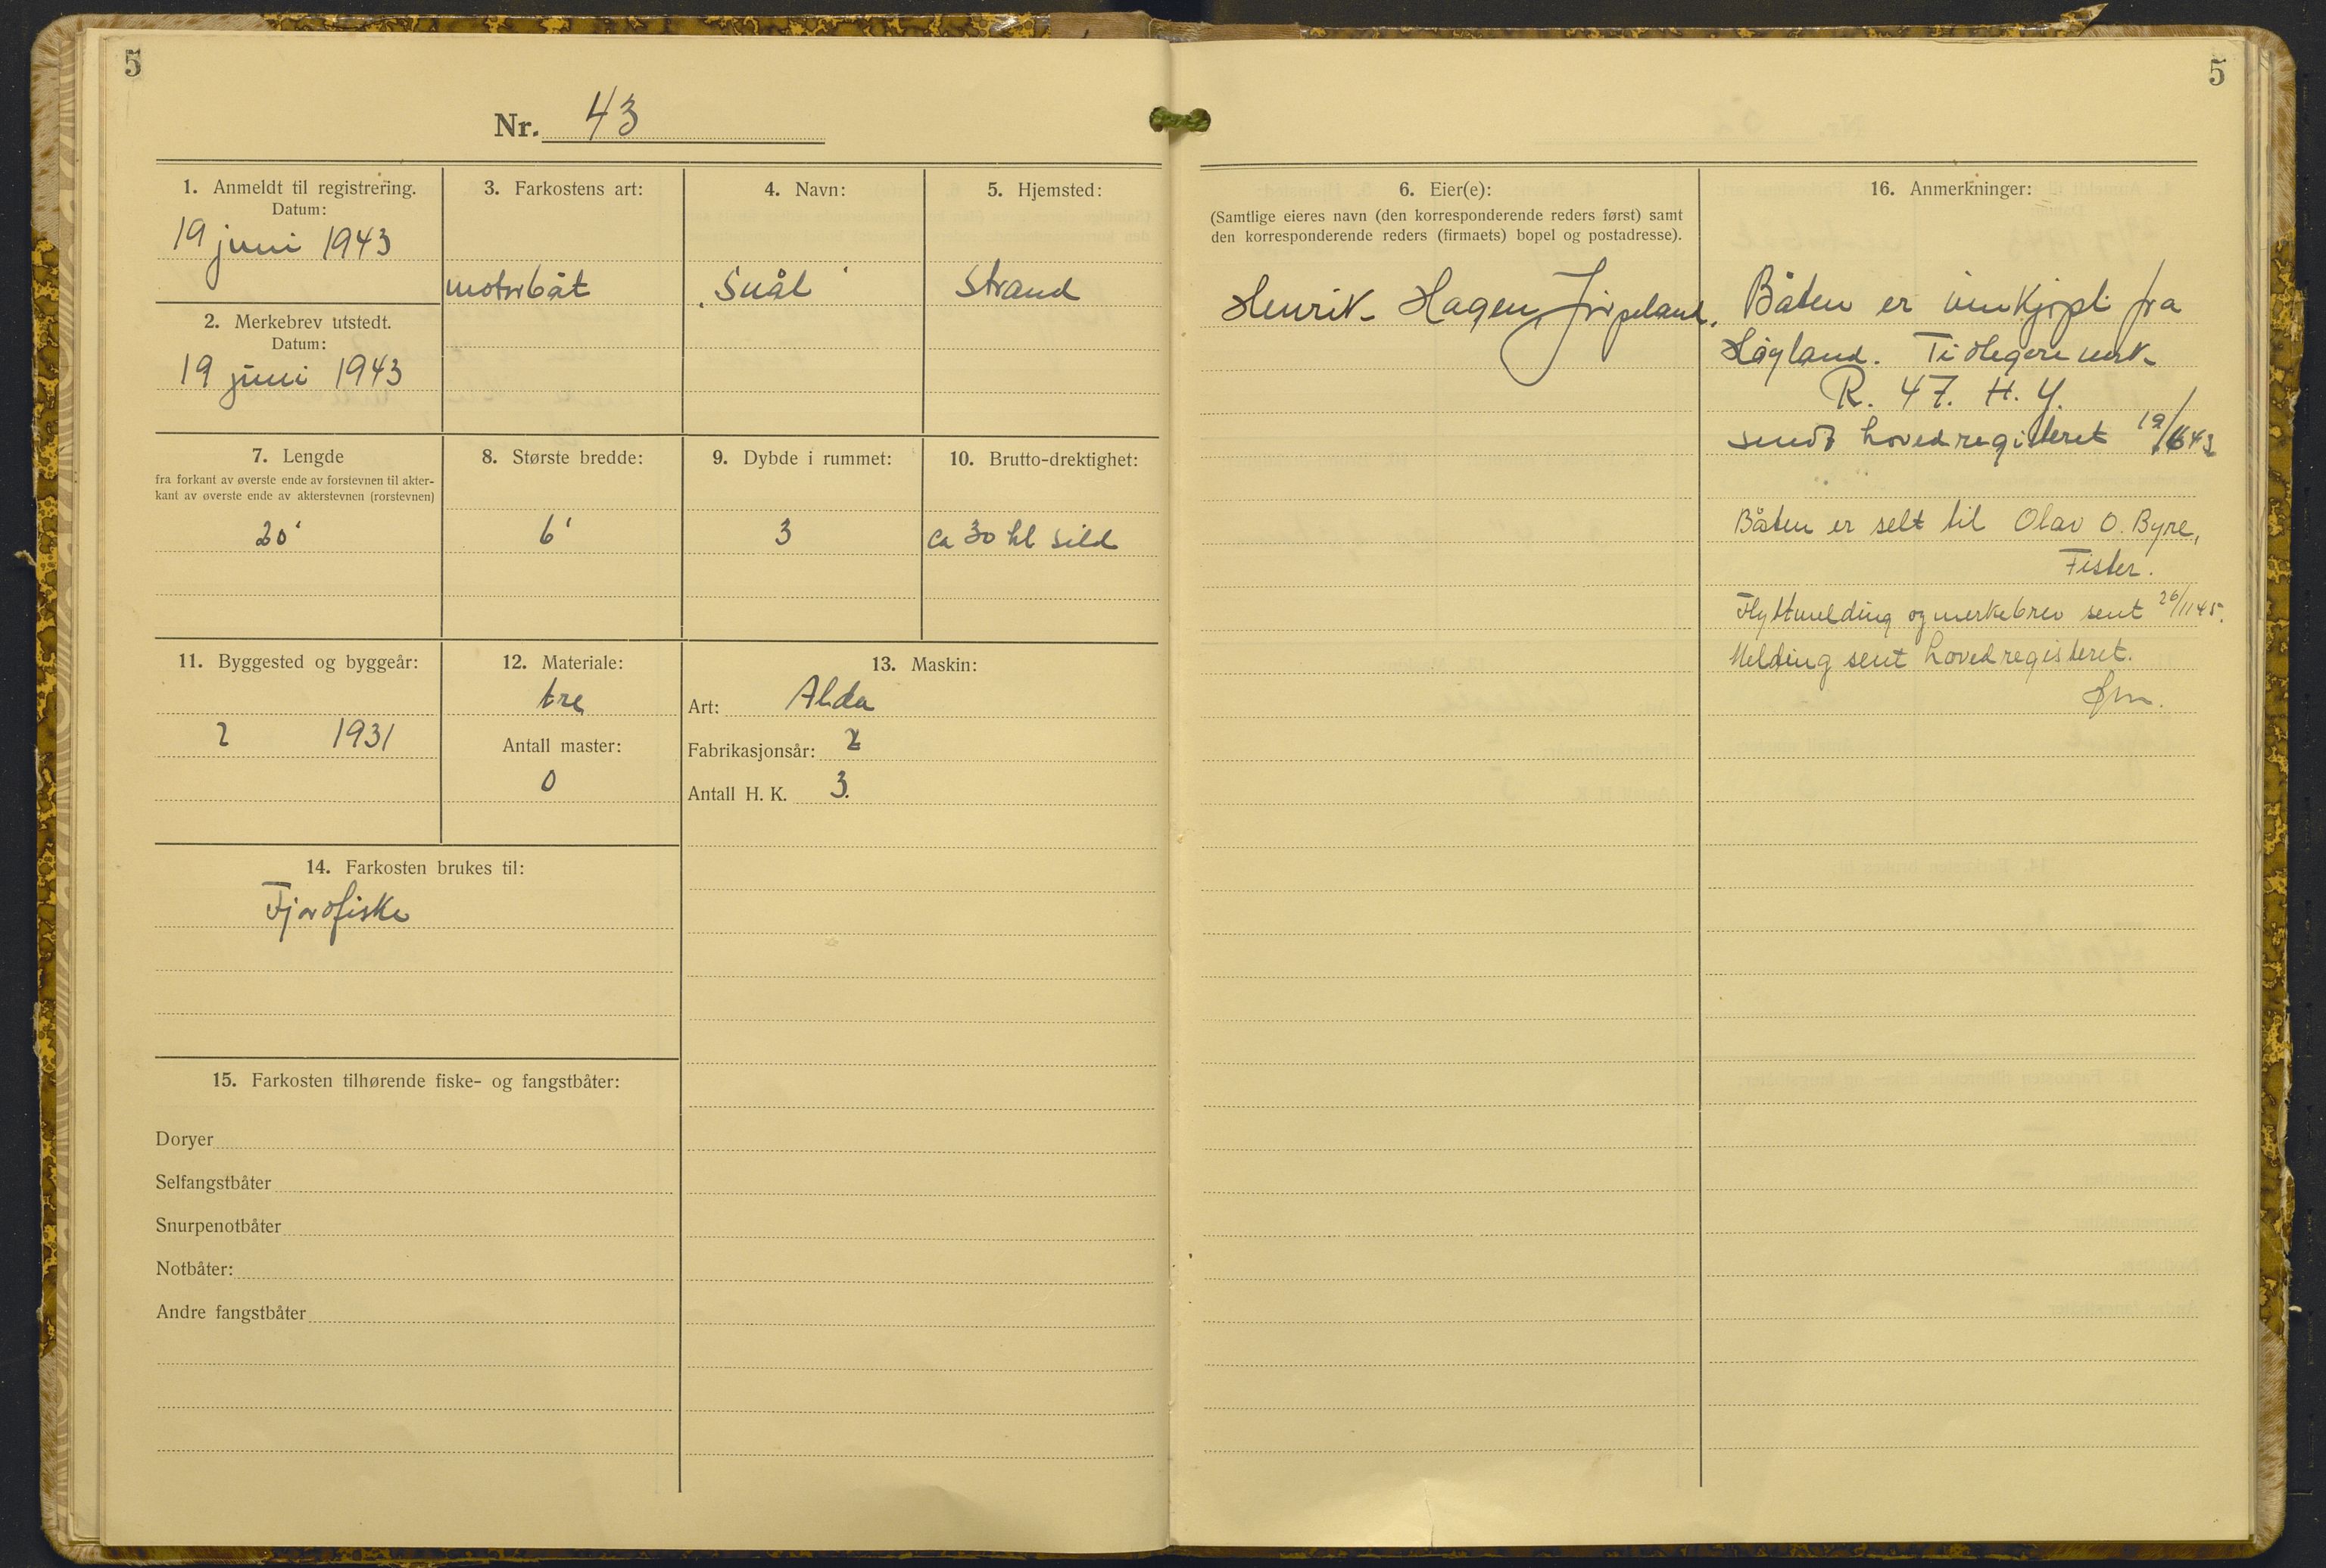 5
Nr. 43
1. Anmeldt til registrering.
Datum:
19 juni 1943
2. Merkebrev utstedt.
Datum:
19 juni 1943
3. Farkostens art:
motorbåt
4. Navn:
5. Hjemsted:
Strand
7. Lengde
fra forkant av øverste ende av forstevnen til akter-
kant av øverste ende av akterstevnen (rorstevnen)
20'
8. Største bredde:
6'
9. Dybde i rummet:
3
10. Brutto-drektighet:
ca 30 hl sild
11. Byggested og byggeår:
? 1931
12. Materiale:
tre
Antall master:
0
13. Maskin:
Art: Alda
Fabrikasjonsår: ?
Antall H. K. 3.
14. Farkosten brukes til:
Fjordfiske
15. Farkosten tilhørende fiske- og fangstbåter:
Doryer
Selfangstbåter
Snurpenotbåter
Notbåter:
Andre fangstbåter
5
6. Eier(e):
(Samtlige eieres navn (den korresponderende reders først) samt
den korresponderende reders (firmaets) bopel og postadresse).
Henrik Hagen, Jørpeland.
16. Anmerkninger:
Båten er innkjøpt fra
Høyland. Tidligere merk
R. 47. H. Y.
sendt hovedregisteret 19/6 43
Båten er selt til Olav O. Byre,
Fister.
Flyttmelding og merkebrev sent 26/11 45.
Melding sent hovedregisteret.